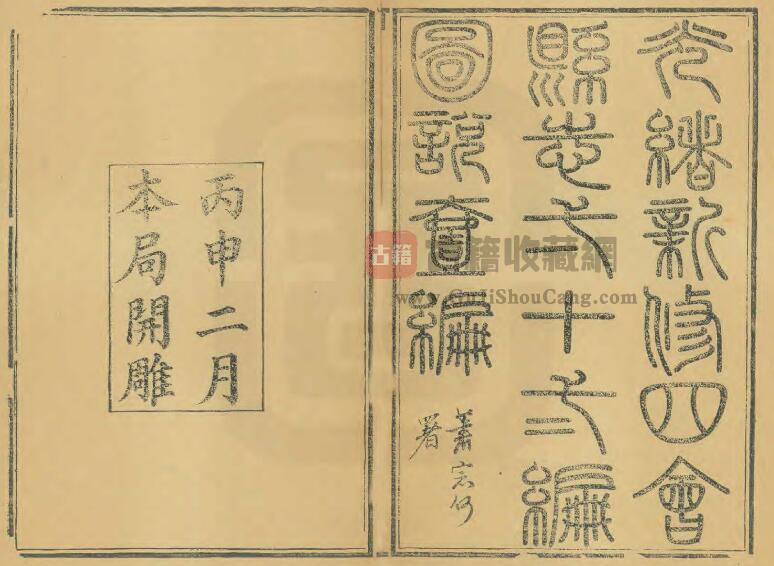 光緒新修四會
縣志 十 編
圖說壹編
署
丙申二月
本局開雕
古籍 古籍收藏網
www.GuJiShouCang.com